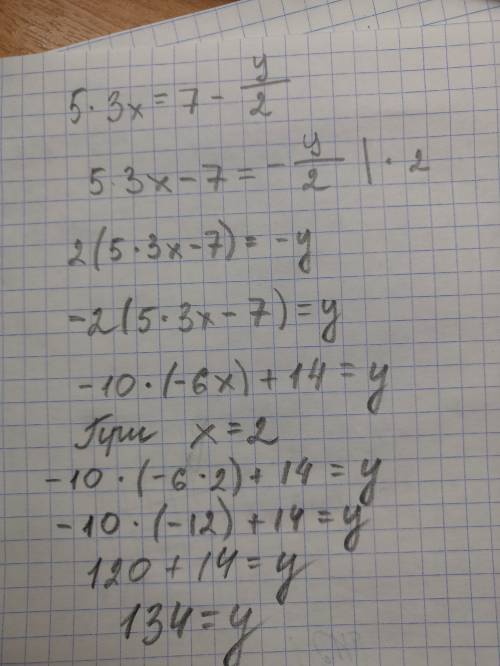 5·3x = 7 - y/2
5·3x - 7 = - y/2 | · 2
2(5·3x-7) = -y
-2(5·3x-7) = y
-10·(-6x)+14 = y
При x=2
-10·(-6·2)+14 = y
-10·(-12)+14 = y
120+14 = y
134 = y